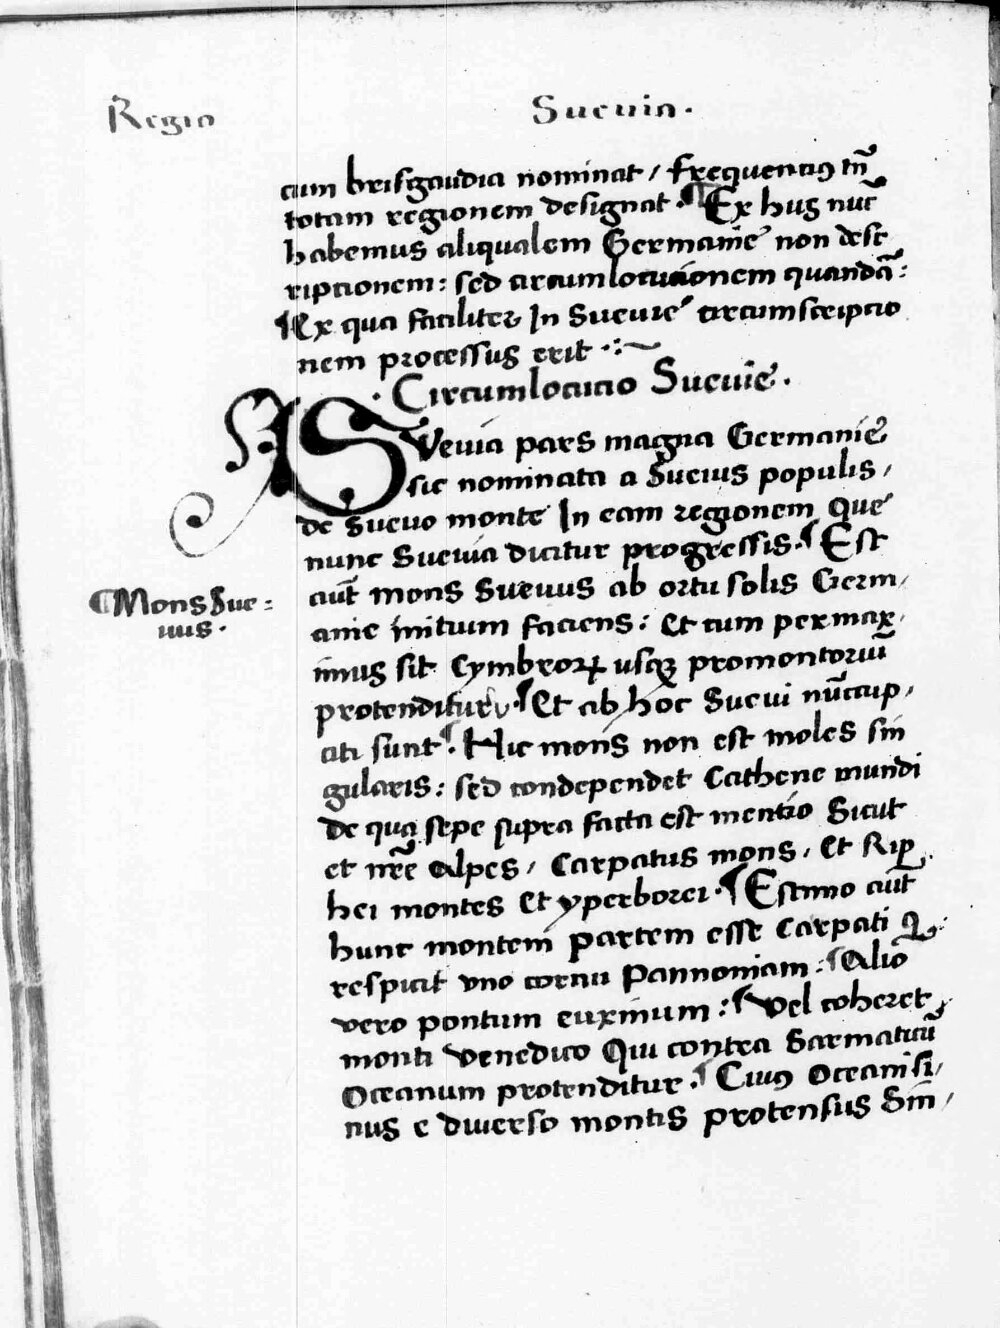 Regio
Sueuia.
cum brisgaudia nominat / frequencius tn̄
totam regionem designat. ¶ Ex hus nuc̄
habemus aliqualem Germanie non desc
riptionem: sed circumlocucionem quandā:
¶ Ex qua faciliter In Sueuie circumscripcio
nem processus erit .:~
. Circumlocucio Sueuie .
SVeuia pars magna Germanie
sic nominata a Sueuis populis /
de Sueuo monte In eam regionem que
nunc Sueuia dicitur progressis. ¶ Est
¶ Mons Sue=
uus.
aut̄ mons Sueuus ab ortu solis Germ/
anie initium faciens: Et cum per max/
imus sit Cymbrorꝝ usqꝫ promontoriū
protenditur. ¶ Et ab hoc Sueui nūccup/
ati sunt ¶. Hic mons non est moles sin
gularis: sed condependet Cathene mundi
de qua sepe supra facta est mentio Sicut
et nr̄e Alpes / Carpatus mons / Et Rip̱
hei montes Et yperborei. ¶ Estimo aut̄
hunc montem partem esse Carpati Q̱
respicit vno cornu Pannoniam: ¶ Alio
vero pontum euxinum: ¶ Vel coheret
monti Venedico Qui contra Sarmaticū
Oceanum protenditur. ¶ Cuius Oceani si/
nus e diuerso montis protensus Sin̄ /